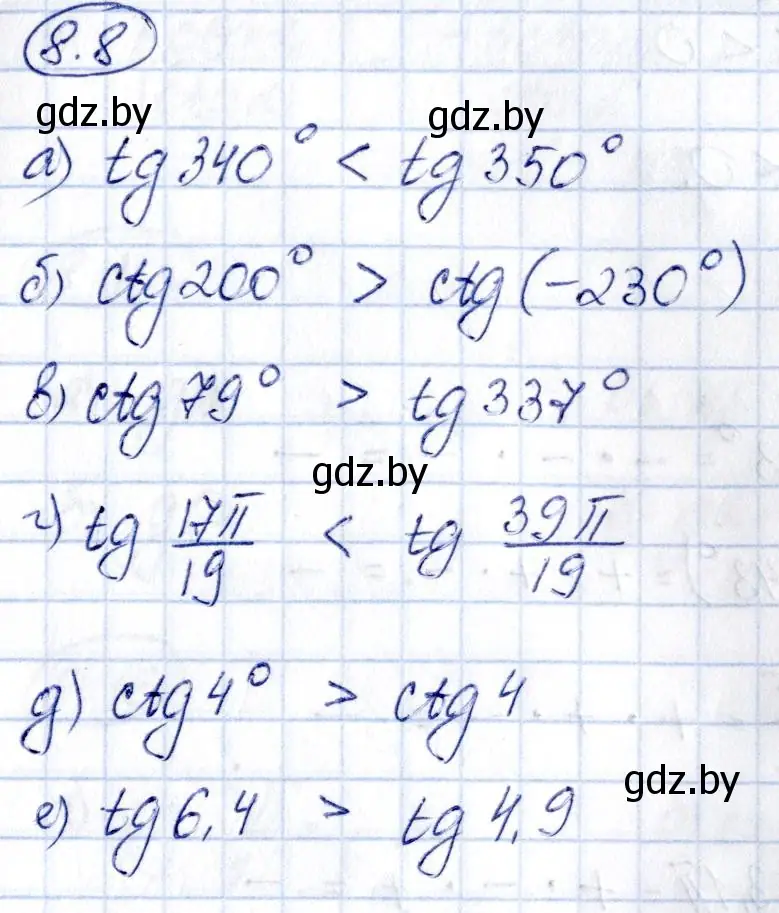 8.8
gdz.by gdz.by
а) tg 340° < tg 350°
б) ctg 200° > ctg (-230°)
в) ctg 79° > tg 337°
gdz.by
г) tg 17π/19 < tg 39π/19
д) ctg 4° > ctg 4
gdz.by
е) tg 6,4 > tg 4,9